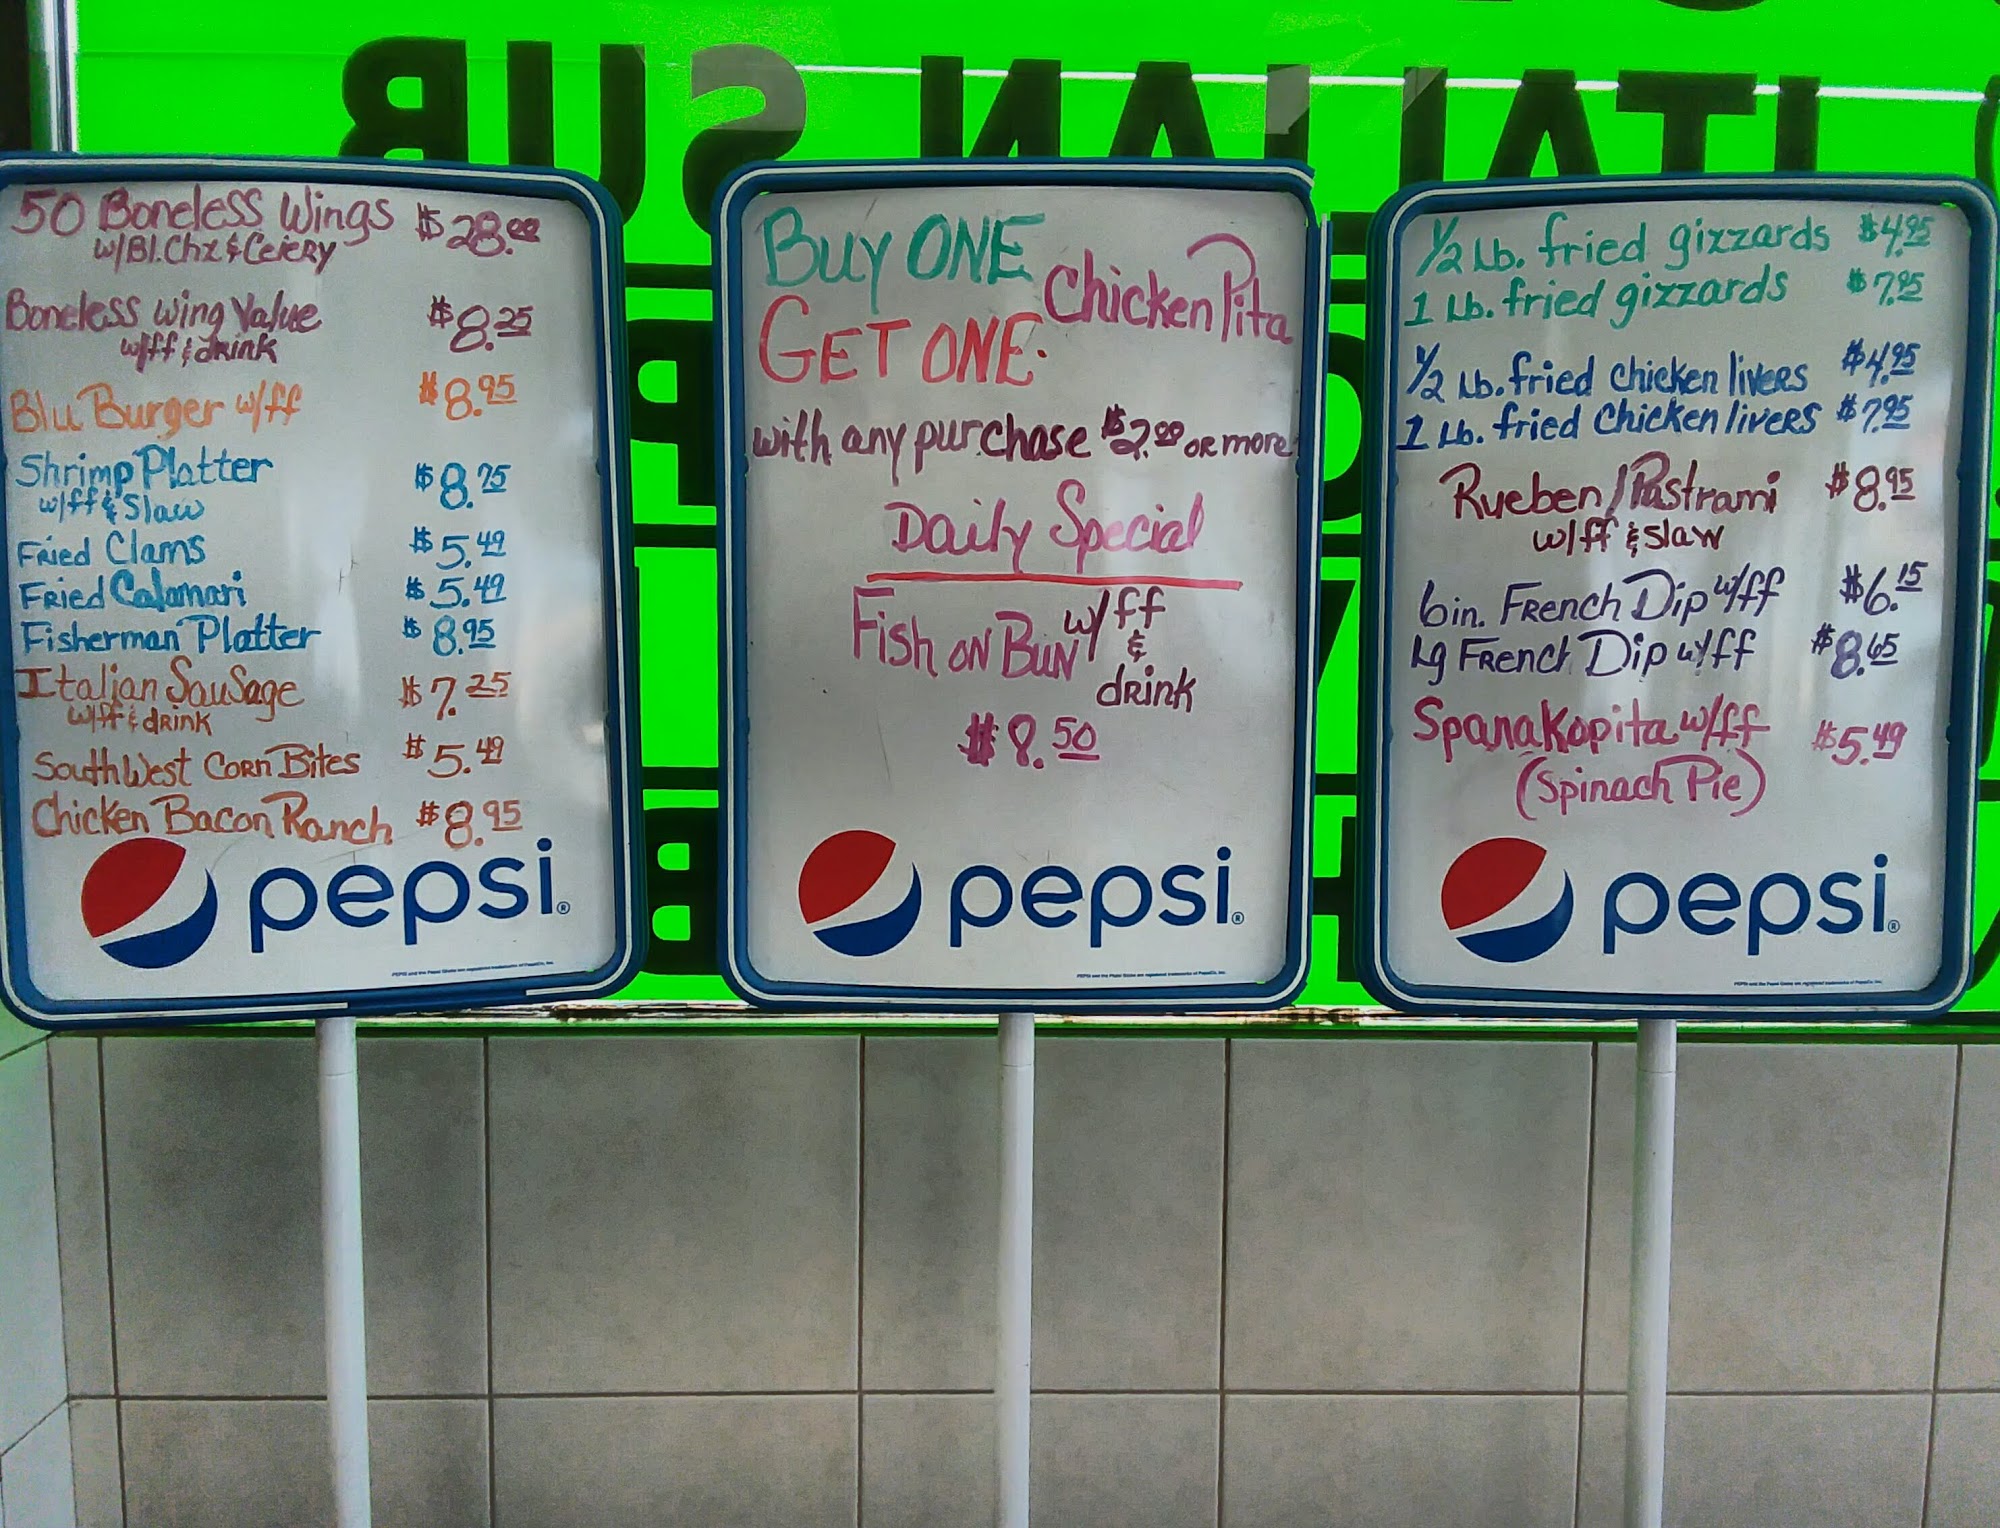 ITALIAN SUB
50 Boneless Wings $28.00
w/Bl.Chz & Celery
Boneless Wing Value $8.25
w/ff & drink
Blu Burger w/ff $8.95
Shrimp Platter $8.75
w/ff & Slaw
Fried Clams $5.49
Fried Calamari $5.49
Fisherman Platter $8.95
Italian Sausage $7.25
w/ff & drink
SouthWest Corn Bites $5.49
Chicken Bacon Ranch $8.95
pepsi®
Buy ONE
GET ONE.
Chicken Pita
with any purchase $2.00 or more
Daily Special
Fish on Bun w/ff
&
drink
$8.50
pepsi®
1/2 Lb. fried gizzards $4.95
1 Lb. fried gizzards $7.95
1/2 Lb. fried chicken livers $4.95
1 Lb. fried chicken livers $7.95
Rueben/Pastrami $8.95
w/ff & slaw
6in. French Dip w/ff $6.15
Lg French Dip w/ff $8.65
Spanakopita w/ff $5.49
(Spinach Pie)
pepsi®